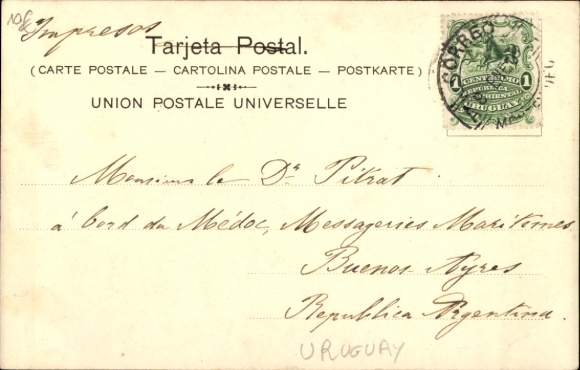 Impresos
Tarjeta Postal.
(CARTE POSTALE — CARTOLINA POSTALE — POSTKARTE)
UNION POSTALE UNIVERSELLE
CORREO
1 CENTESIMO 1
REPUBLICA
ORIENTAL
URUGUAY
Monsieur le Dr Pitrat
á bord du Médoc, Messageries Maritimes
Buenos Ayres
Republica Argentina.
URUGUAY